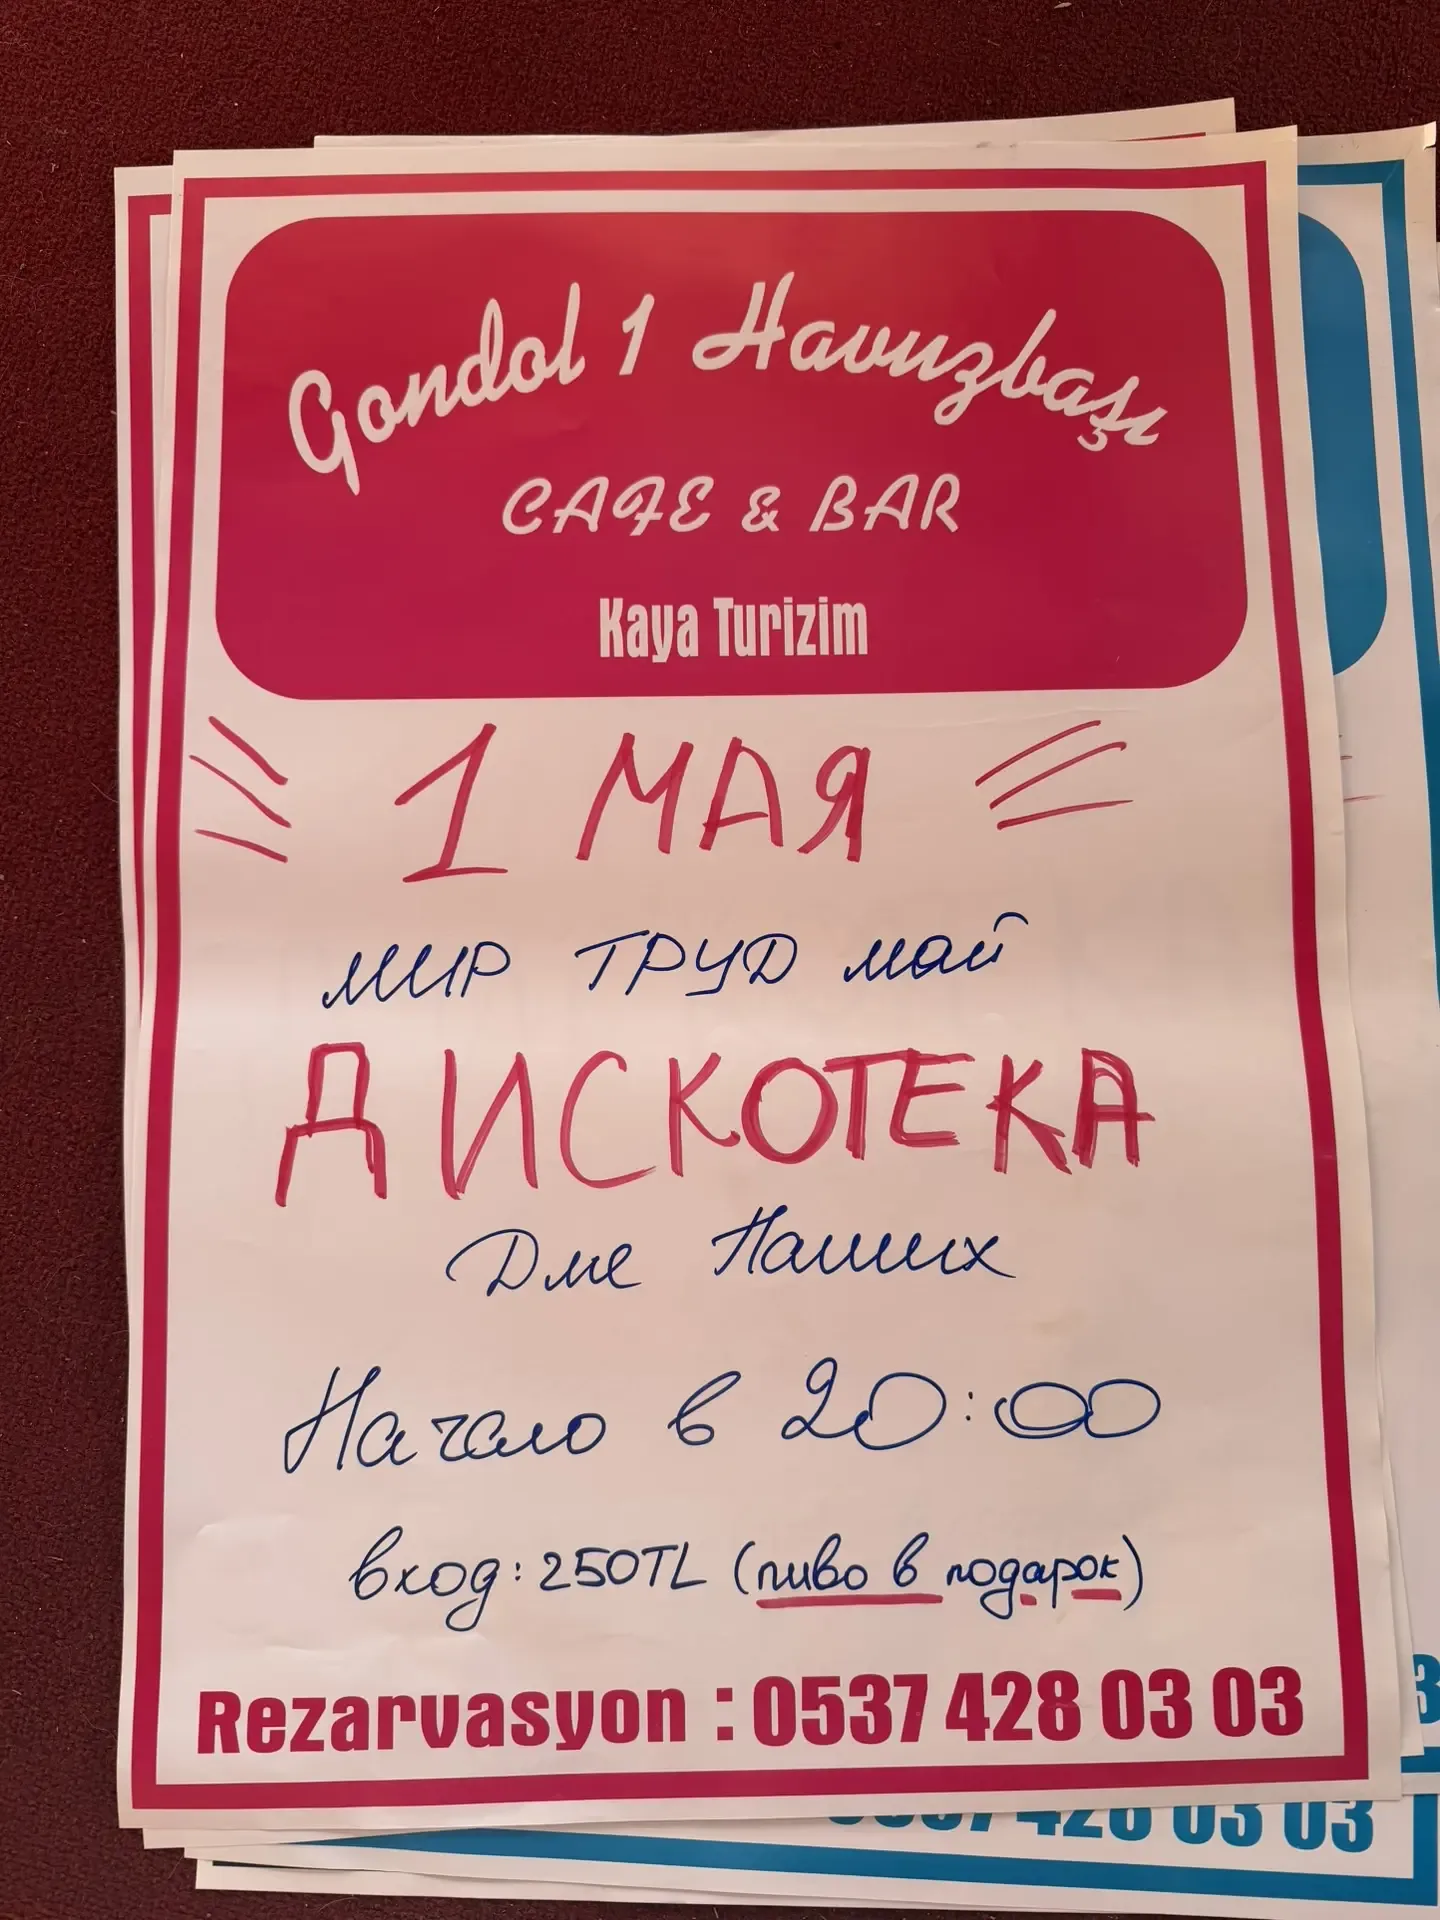 Gondol 1 Havuzbaşı
CAFE & BAR
Kaya Turizim
1 МАЯ
МИР ТРУД май
ДИСКОТЕКА
Для Наших
Начало в 20:00
вход: 250TL (пиво в подарок)
Rezarvasyon : 0537 428 03 03
3
0537 428 03 03